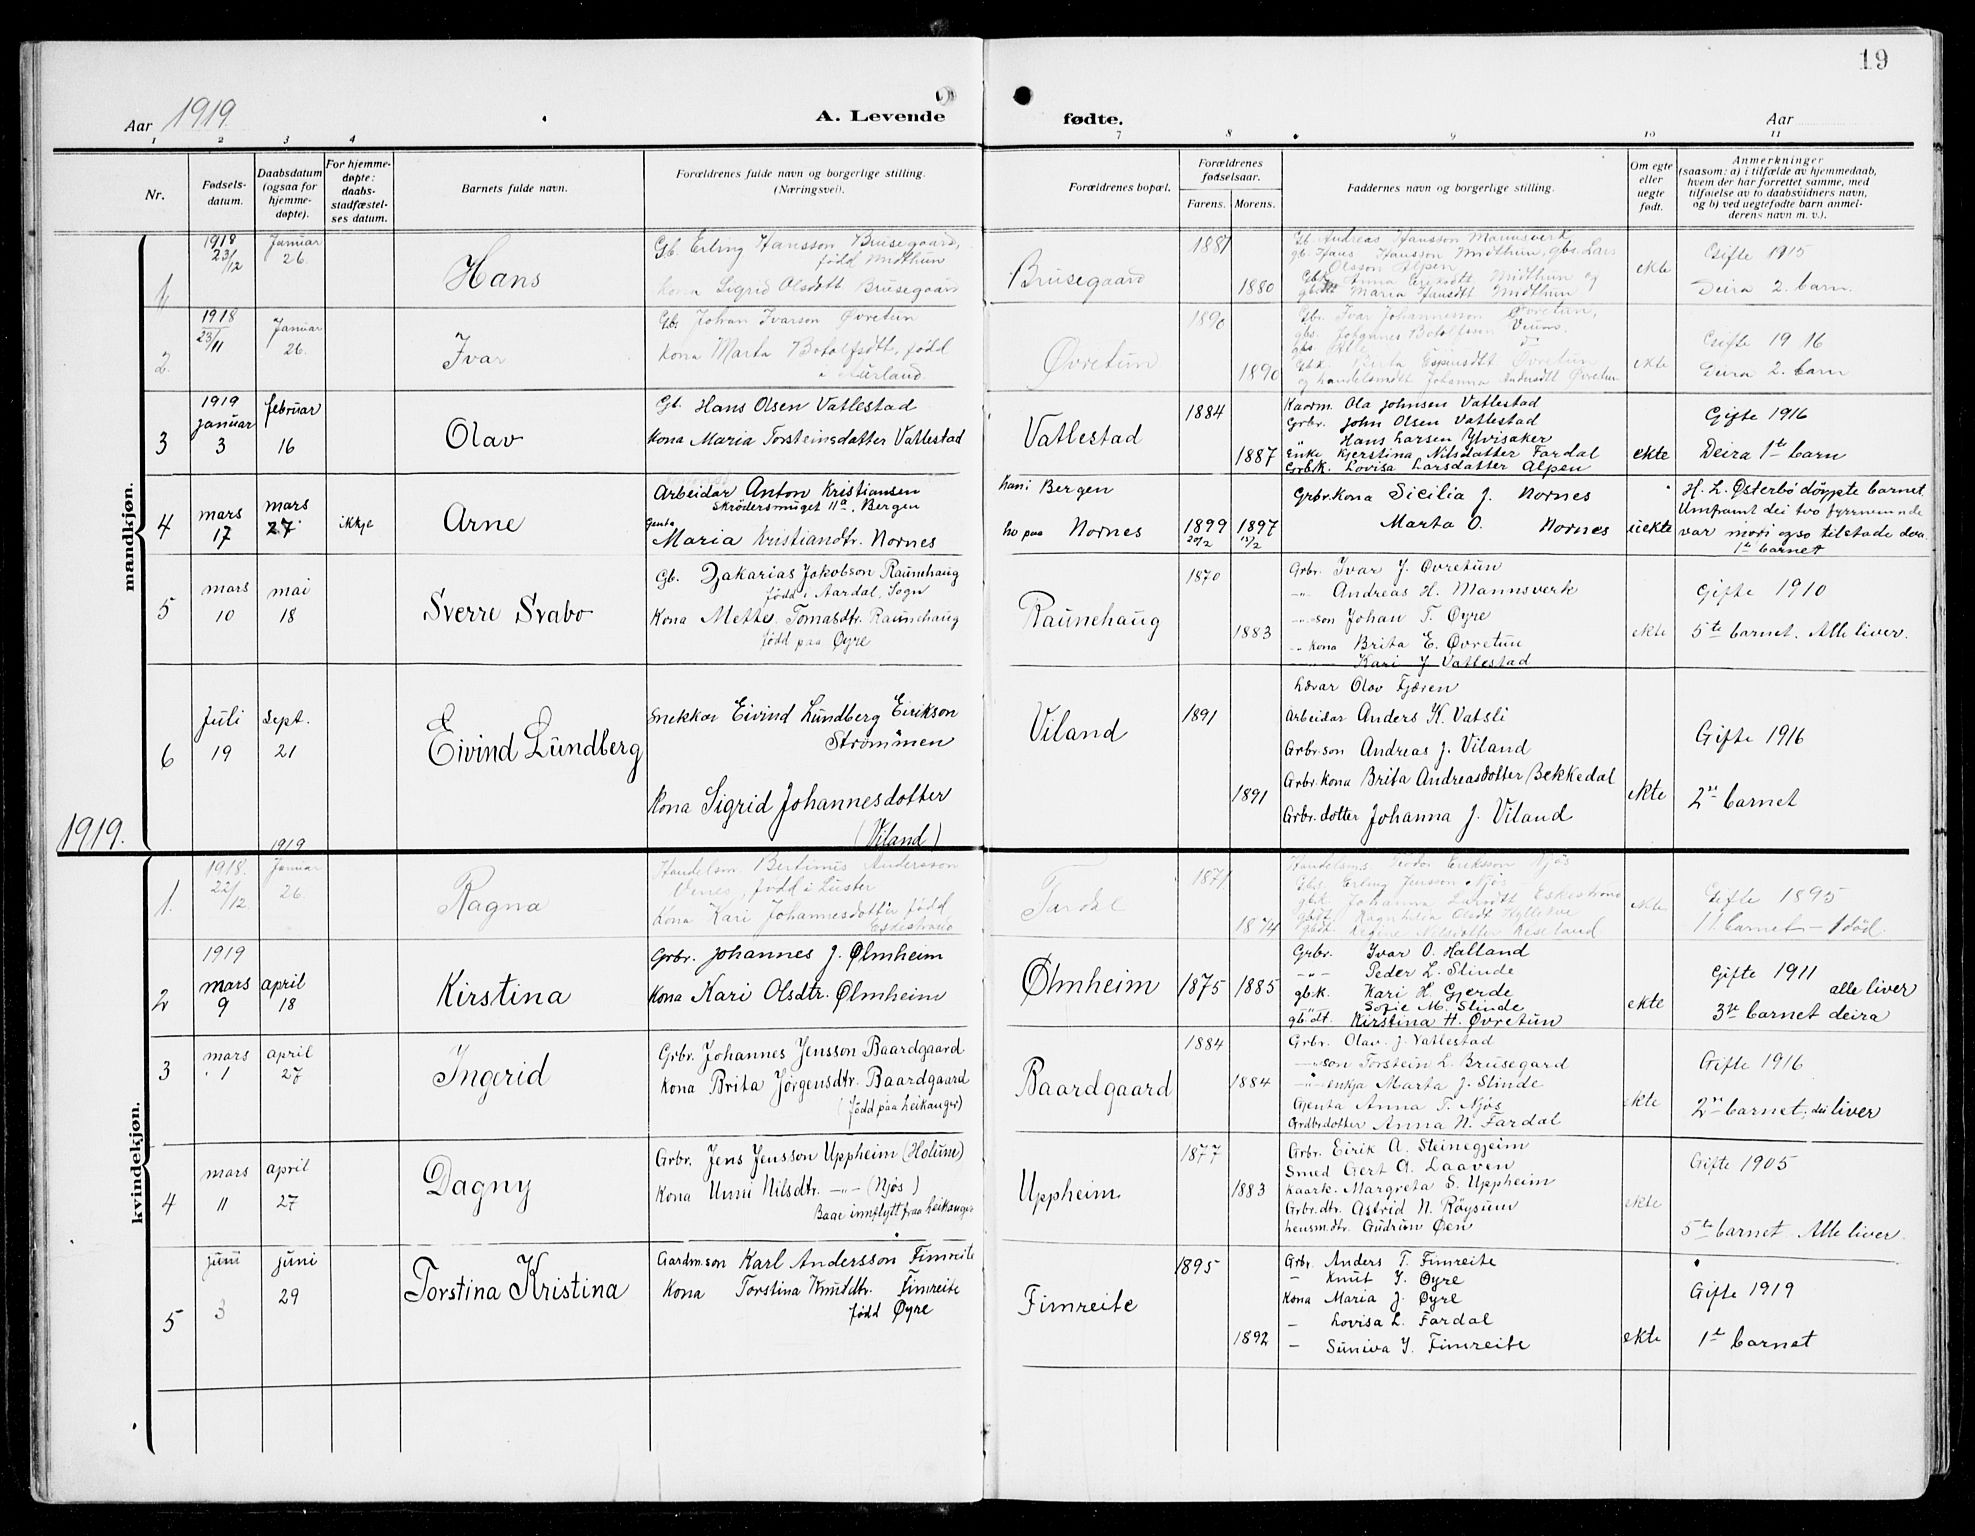 19
Aar 1919.
A. Levende
fødte.
Aar
1 2 3 4
7 8 9 10 11
Nr.
Fødsels-
datum.
Daabsdatum
(ogsaa for
hjemme-
døpte).
For hjemme-
døpte:
daabs-
stadfæstel-
ses datum.
Barnets fulde navn.
Forældrenes fulde navn og borgerlige stilling.
(Næringsvei).
Forældrenes bopæl.
Forældrenes
fødselsaar.
Farens. Morens.
Faddernes navn og borgerlige stilling.
Om egte
eller
uegte
født.
Anmerkninger
(saasom: a) i tilfælde av hjemmedaab,
hvem der har forrettet samme, med
tilføielse av to daabsvidners navn,
og b) ved uegtefødte barn anmel-
derens navn m. v.).
mandkjøn.
1
1918
23/12
Januar
26.
Hans
Gb. Erling Hansson Brusegaard,
født Midthun
kona Sigrid Olsdtt Brusegaard
Brusegaard
1881
1880
Gb. Andreas Hansson Mannsverk
gb. Hans Hansson Midthun, gbs. Lars
Olsson Alpen
Gbk Anna Eriksdtt Midthun og
Maria Hansdtt Midthun
ekte
Gifte 1915
Deira 2. barn.
2.
1918
23/11
Januar
26.
Ivar
Gb. Johan Ivarson Øvretun
kona Marta Botolfsdtt, født
i Aurland.
Øvretun
1890
1890
Gb. Ivar Johannesson Øvretun,
gbs. Johannes Botolfsen
Øvretun
og handelsmdtt Johanna Andersdtt Øvretun
ekte
Gifte 1916
Deira 2. barn
3
1919
januar
3
februar
16
Olav
Gb. Hans Olsen Vatlestad
Kona Maria Torsteinsdatter Vatlestad
Vatlestad
1884
1887
Kaarm. Ola Johnsen Vatlestad
Grbr. John Olsen Vatlestad
Hans Larsen Ylvisaker
Enke Kjerstina Nilsdatter Fardal
Grbrk. Lovisa Larsdatter Alpen
ekte
Gifte 1916
Deira 1te barn
4
mars
17
mars
27
ikkje
Arne
Arbeidar Anton Kristiansen
Skrödersmuget 11a, Bergen
Genta
Maria Kristiandtr. Nornes
han i Bergen
ho paa Nornes
1899
20/2
1897
12/2
Grbr.kona Sicilia J. Nornes
Marta O. Nornes
uekte
H. L. Østerbö döypte barnet.
Umframt dei tvo fyrrnemnde
var mori ogso tilstade
1te barnet
5
mars
10
mai
18
Sverre Svabo
Gb. Zakarias Jakobson Raunehaug
född i Aardal, Sogn
Kona Mette Tomasdtr. Raunehaug
född paa Øyre
Raunehaug
1870
1883
Grbr. Ivar J. Øvretun
-"- Andreas H. Mannsverk
-"-son Johan T. Øyre
-"- kona Brita E. Øvretun
-"- Kari J Vatlestad
ekte
Gifte 1910
5te barnet. Alle liver.
6
Juli
19
Sept.
21
Eivind Lundberg
Snekkar Eivind Lundberg Eirikson
Strömmen
Kona Sigrid Johannesdotter
(Viland)
Viland
1891
1891
Lærar Olav Fjæren
Arbeidar Anders K. Vatsli
Grbr.son Andreas J. Viland
Grbr.kona Brita Andreasdotter Bekkedal
Grbr.dotter Johanna J. Viland
ekte
Gifte 1916
2re barnet
1919.
kvindekjøn.
1.
1918.
22/12
1919
Januar
26.
Ragna
Handelsm. Bertinus Andersson
Venes, född i Luster
Kona Kari Johannesdotter född
Eskestrand
Fardal
1871
1874
Handelsm. Teodor Eriksson Njøs
Gbs. Erling Jensson Njøs
gbk. Johanna Larsdtt Eskestrand
gbdt. Ragnhilda Olsdt. Hyllekve
gbdt. Regine Nilsdotter Keseland
ekte
Gifte 1895
11. barnet – 1 död.
2
1919
mars
9
april
18
Kirstina
Grbr. Johannes J. Ølmheim
Kona Kari Olsdtr. Ølmheim
Ølmheim
1875
1885
Grbr. Ivar O. Halland
-"- Peder L. Slinde
gb.k. Kari H Gjerde
" Sofie M. Slinde
gb dt. Kirstina H. Øvretun
ekte
Gifte 1911
alle liver
3re barnet deira
3
mars
1
april
27
Ingerid
Grbr. Johannes Jensson Baardgaard
Kona Brita Jörgensdtr. Baardgaard
(född paa Leikanger)
Baardgaard
1884
1884
Grbr. Olav J. Vatlestad
-"-son Torstein L. Brusegard
-"- enkja Marta J. Slinde
Gjenta Anna T. Njøs
Grdbrdotter Anna N. Fardal
ekte
Gifte 1916
2re barnet, dei liver
4
mars
11
april
27
Dagny
Grbr. Jens Jensson Uppheim (Holum)
Kona Unni Nilsdtr. -"- (Njøs)
Baae innflytt fraa Leikanger
Uppheim
1877
1883
Grbr. Eirik A. Steinegjeim
Smed Gert A. Laaven
Kaark. Margreta S. Uppheim
Grbr.dtr. Astrid N. Röysum
Lensm.dtr. Gudrun Øen
ekte
Gifte 1905
5te barnet. Alle liver.
5
juni
3
juni
29
Torstina Kristina
Gardm.son Karl Andersson Fimreite
Kona Torstina Knutdtr. Fimreite
född Øyre
Fimreite
1895
1892
Grbr. Anders T. Fimreite
– Knut J. Øyre
Kona Maria J. Øyre
– Lovisa L. Fardal
– Suniva J. Fimreite
ekte
Gifte 1919
1te barnet